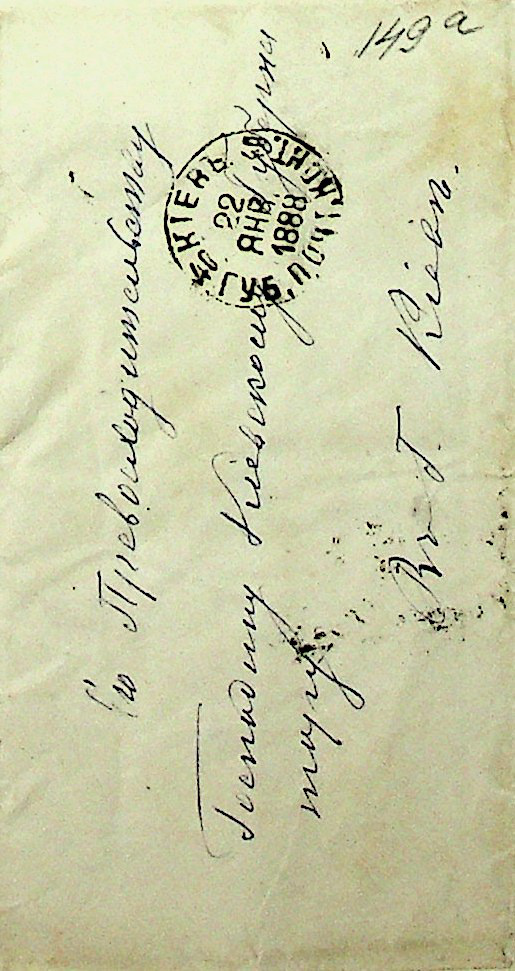 149а
Его Превосходительству
Господину Киевскому Губерна
тору
Въ г. Кіевъ.
КІЕВЪ ГУБ. ПОЧТ. КОНТ.
22
ЯНВ.
1888